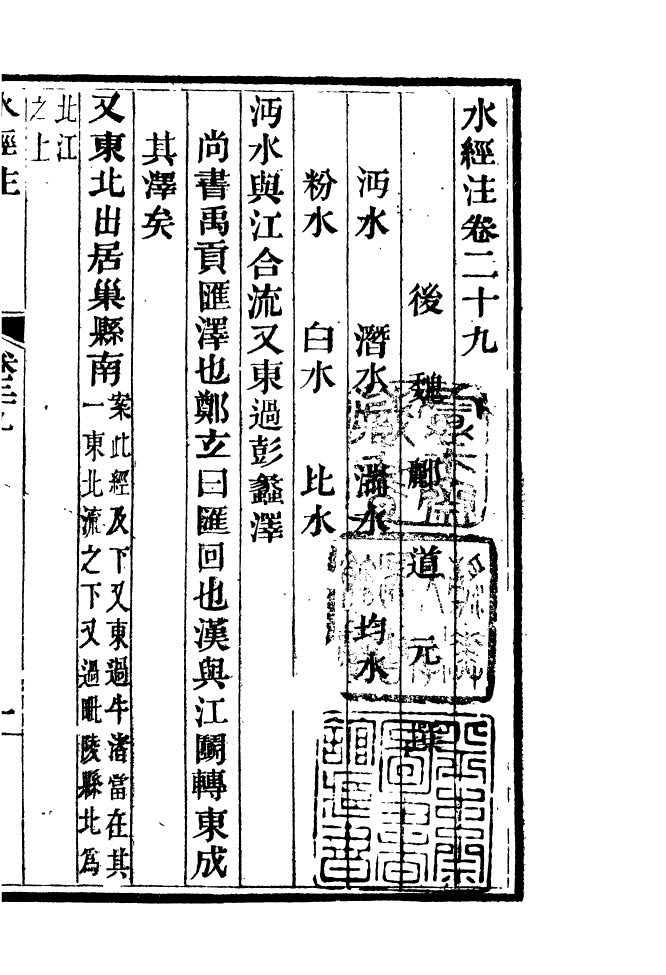 水經注卷二十九
後魏酈道元撰
沔水　潛水　湍水　均水
粉水　白水　比水
沔水與江合流又東過彭蠡澤
尚書禹貢匯澤也鄭玄曰匯回也漢與江鬭轉東成
其澤矣
又東北出居巢縣南案此經及下又東過牛渚當在其
一東北流之下又過毗陵縣北爲
北江
之上
水經注
卷二十九
一